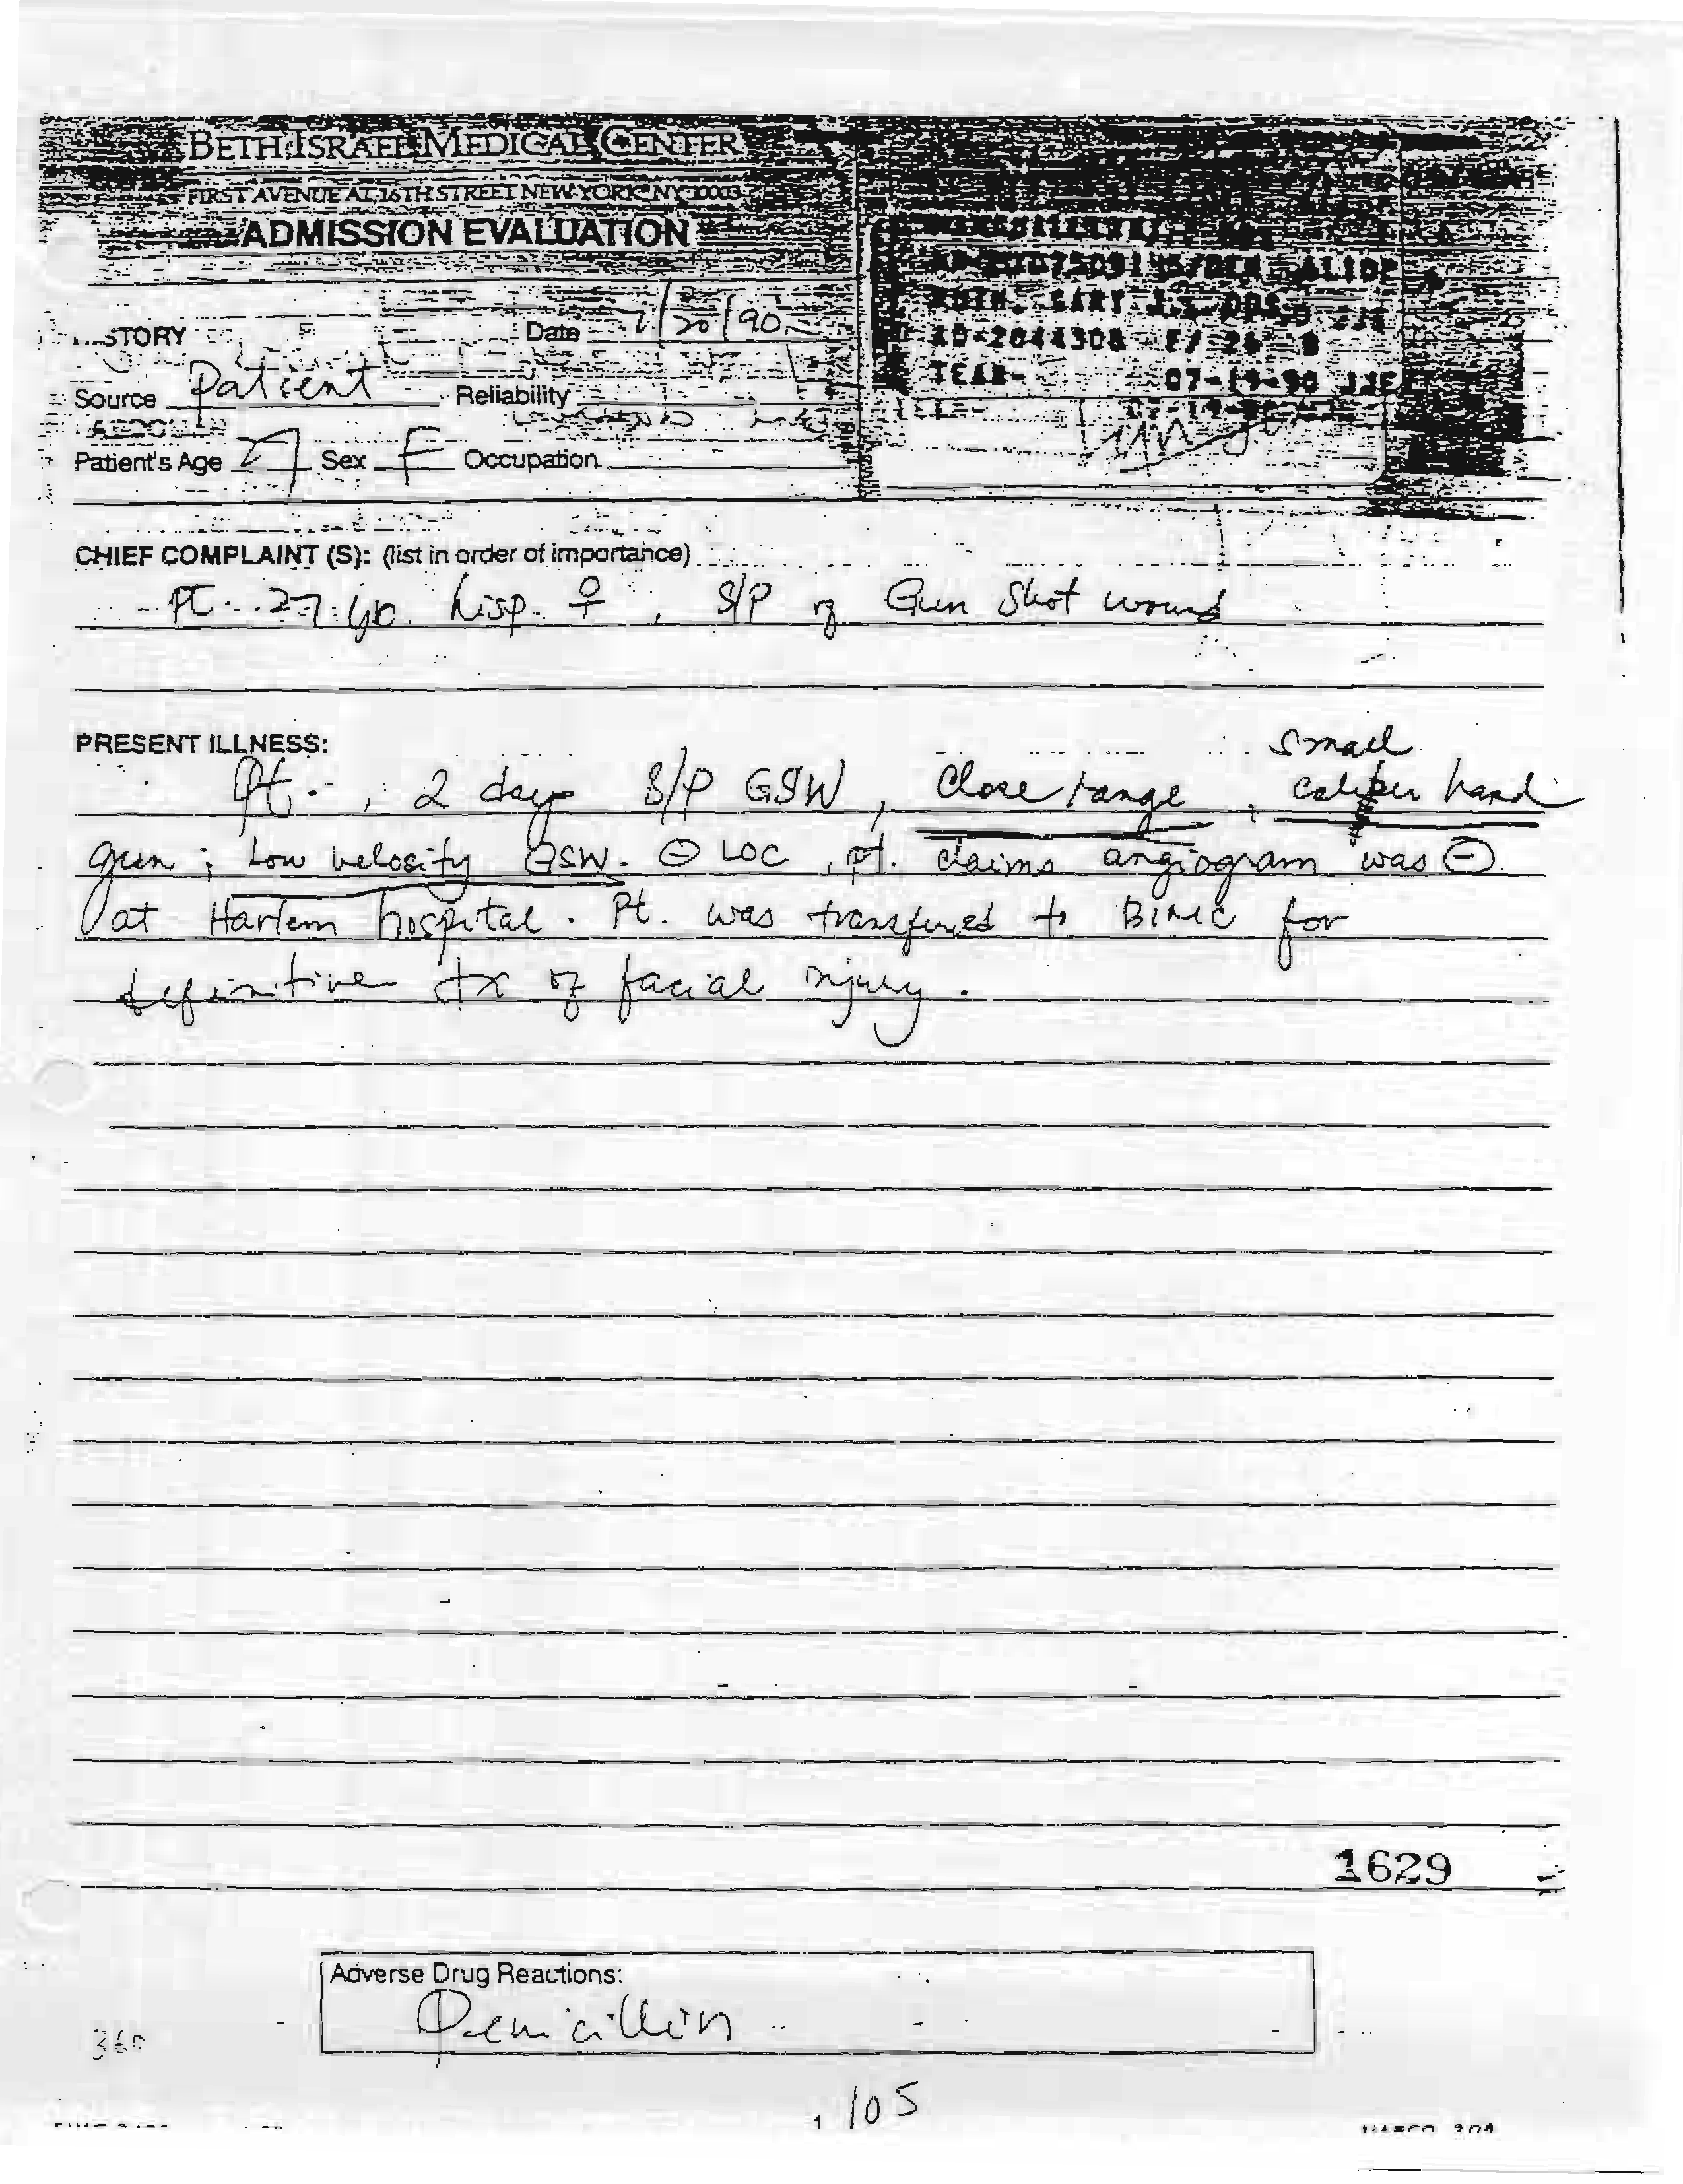 BETH ISRAEL MEDICAL CENTER
FIRST AVENUE AT 16TH STREET NEW YORK NY 10003
ADMISSION EVALUATION
STORY Date 7/20/90
Source Patient Reliability
Patient's Age 27 Sex F Occupation
F/26
07-19-90
CHIEF COMPLAINT (S): (list in order of importance)
Pt. 27 yo. hisp. ♀, S/P of Gun Shot wound
PRESENT ILLNESS:
small
Pt. , 2 days S/P GSW, Close range, caliber hand
gun; Low velosity GSW. ⊖ LOC, pt. claims angiogram was ⊖
at Harlem hospital. Pt. was transfered to BIMC for
definitive tx of facial injury.
1629
Adverse Drug Reactions:
Penicillin
360
1 105